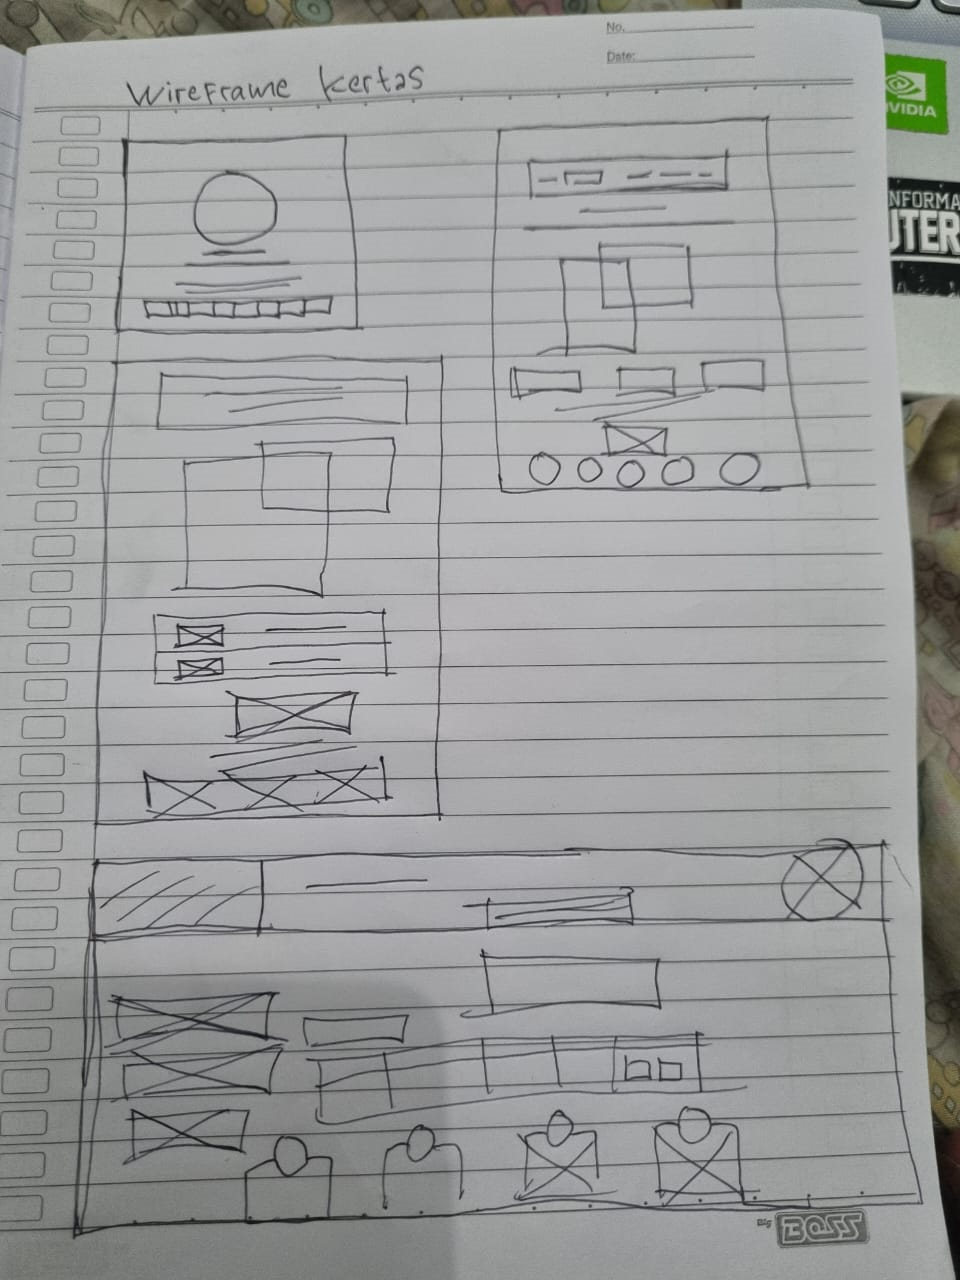 No.
Date:
WireFrame Kertas
NVIDIA
NFORMA
UTER
Big BOSS